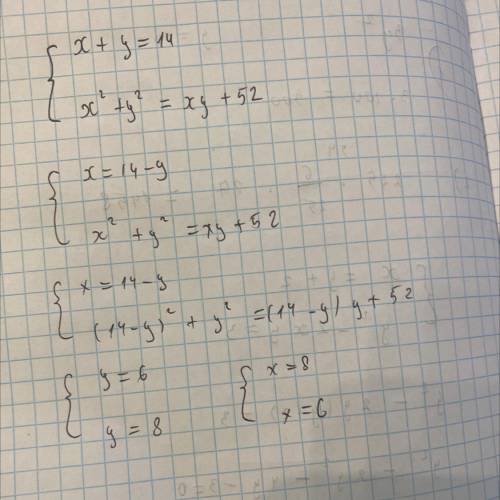 x + y = 14
x² + y² = xy + 52
x = 14 - y
x² + y² = xy + 52
x = 14 - y
(14 - y)² + y² = (14 - y) y + 52
y = 6 x = 8
y = 8 x = 6